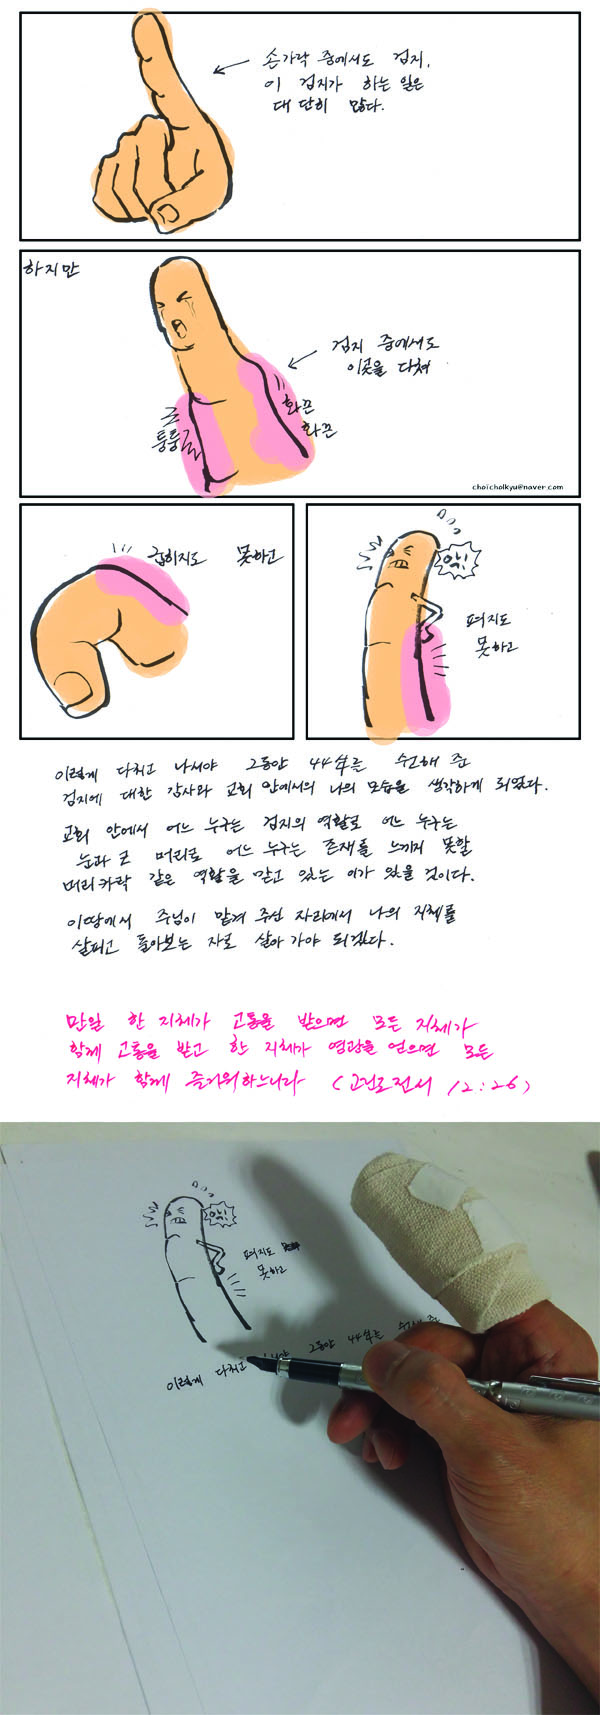 손가락 중에서도 검지,
이 검지가 하는 일은
대단히 많다.
하지만
검지 중에서도
이곳을 다쳐
화끈
화끈
퉁퉁
choicholkyu@naver.com
굽히지도 못하고
악!
펴지도
못하고
이렇게 다치고 나서야 그동안 44年을 수고해 준
검지에 대한 감사와 교회 안에서의 나의 모습을 생각하게 되었다.
교회 안에서 어느 누구는 검지의 역할로 어느 누구는
눈과 코 머리로 어느 누구는 존재를 느끼지 못할
머리카락 같은 역할을 맡고 있는 이가 있을 것이다.
이땅에서 주님이 맡겨 주신 자리에서 나의 지체를
살피고 돌아보는 자로 살아가야 되겠다.
만일 한 지체가 고통을 받으면 모든 지체가
함께 고통을 받고 한 지체가 영광을 얻으면 모든
지체가 함께 즐거워하느니라 (고린도전서 12:26)
악!
펴지도
못하고
이렇게 다치고 나서야 그동안 44年을